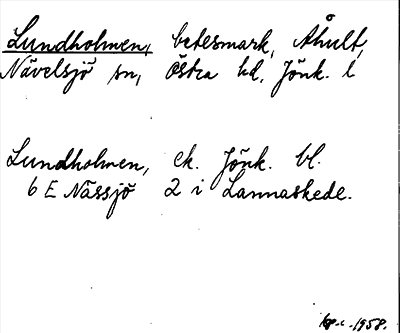 Lundholmen, betesmark, Åhult,
Nävelsjö sn, Östra hd, Jönk. l
Lundholmen, ek. Jönk. bl.
6 E Nässjö 2 i Lannaskede.
1958.